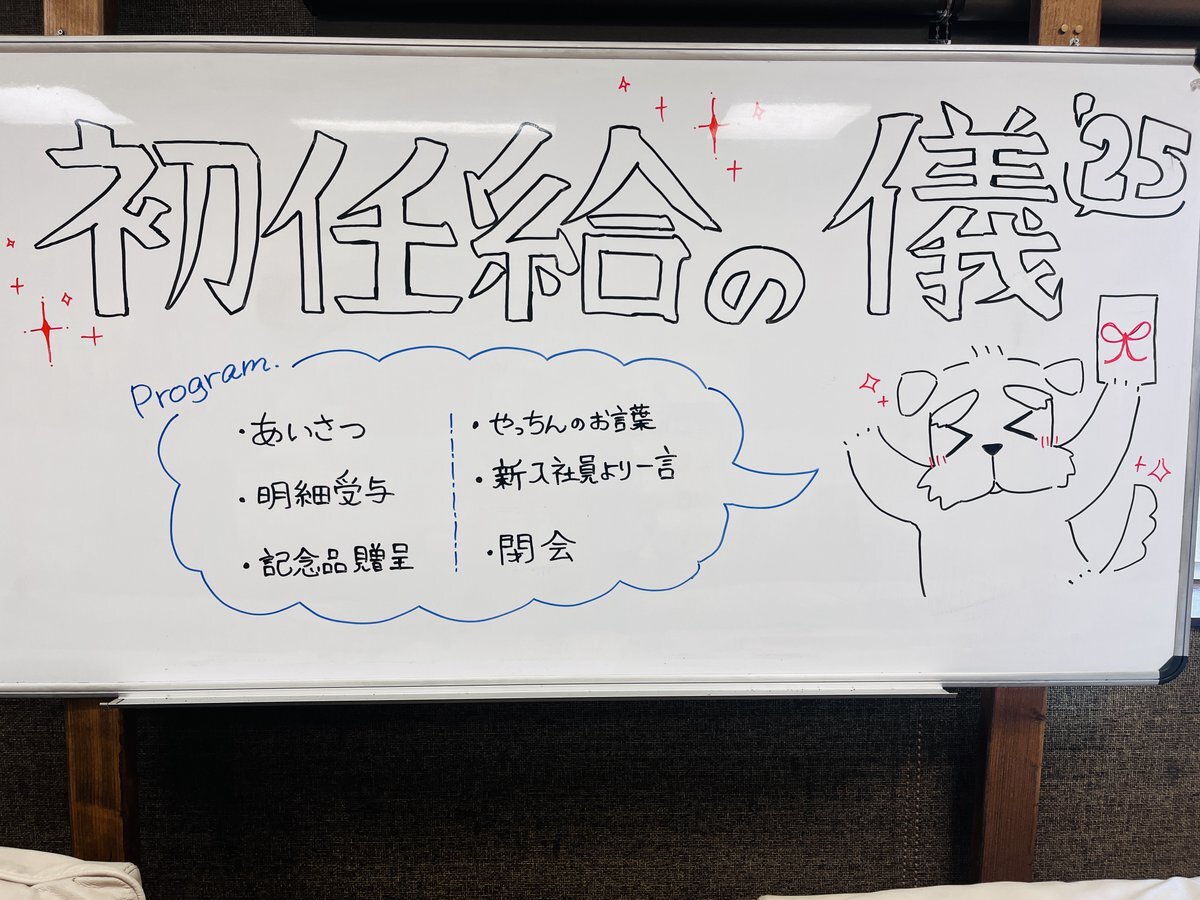 初任給の儀 '25
Program.
・あいさつ
・明細受与
・記念品贈呈
・やっちんのお言葉
・新入社員より一言
・閉会